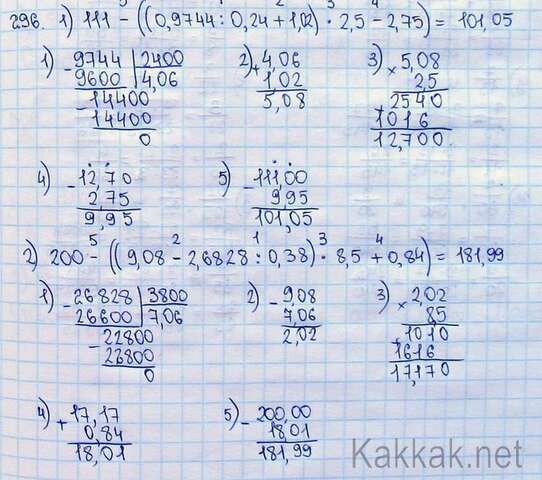 296. 1) 111 - ((0,9744 : 0,24 + 1,02) · 2,5 - 2,75) = 101,05
1) - 9744 | 2400
9600 | 4,06
- 14400
14400
0
2) + 4,06
1,02
5,08
3) × 5,08
2,5
2540
1016
12,700
4) - 12,70
2,75
9,95
5) - 111,00
9,95
101,05
2) 200 - ((9,08 - 2,6828 : 0,38) · 8,5 + 0,84) = 181,99
1) - 26828 | 3800
26600 | 7,06
- 22800
22800
0
2) - 9,08
7,06
2,02
3) × 2,02
85
1010
1616
17,170
4) + 17,17
0,84
18,01
5) - 200,00
18,01
181,99
Kakkak.net